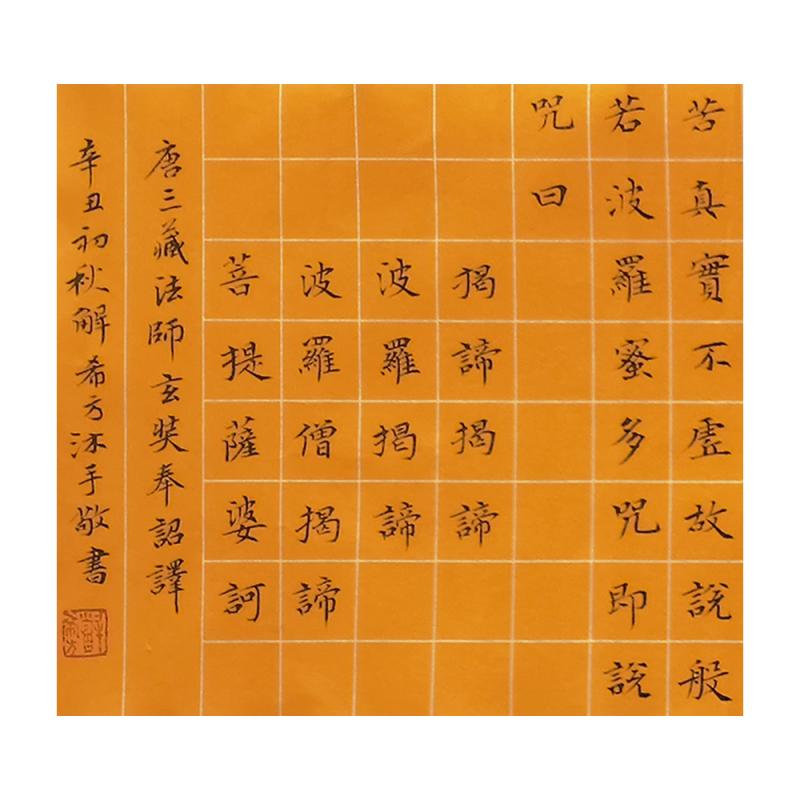 苦真實不虛故說般
若波羅蜜多咒即說
咒曰
揭諦揭諦
波羅揭諦
波羅僧揭諦
菩提薩婆訶
唐三藏法師玄奘奉詔譯
辛丑初秋解希方沐手敬書